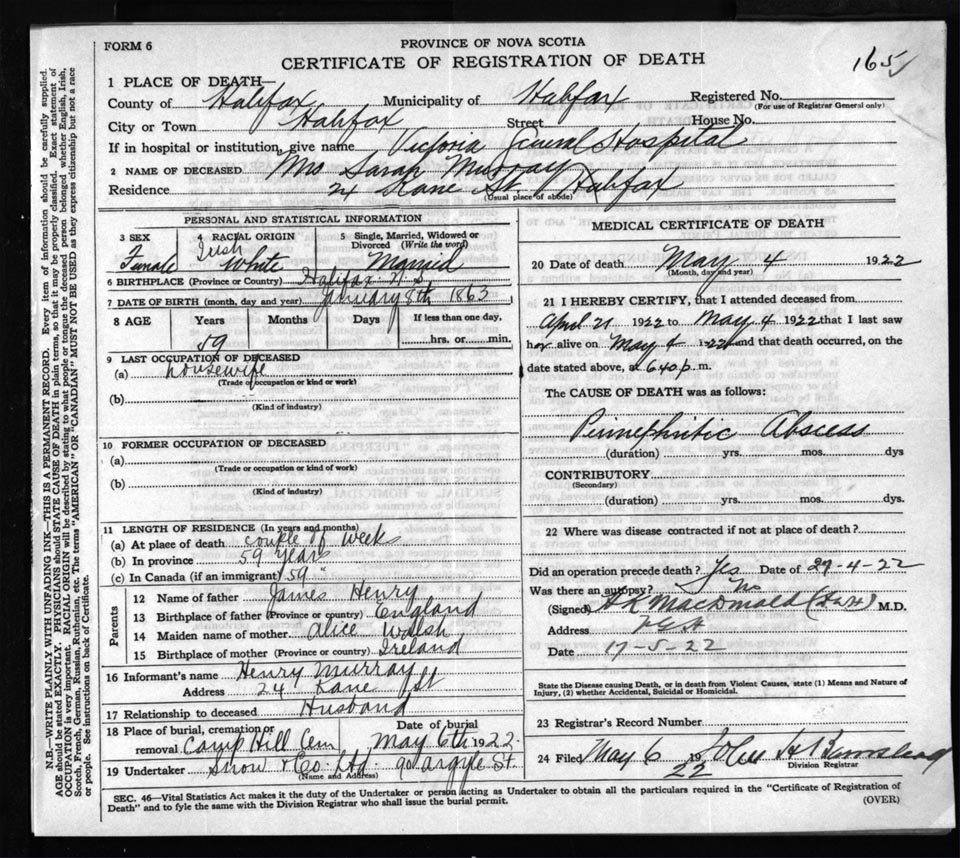 N.B.—WRITE PLAINLY WITH UNFADING INK—THIS IS A PERMANENT RECORD. Every item of information should be carefully supplied.
AGE should be stated EXACTLY. PHYSICIANS should STATE CAUSE OF DEATH in plain terms, so that it may be properly classified. Exact statement of
OCCUPATION is very important. RACIAL ORIGIN will be described by stating to what people or tongue the deceased person belonged whether English, Irish,
Scotch, French, German, Russian, Ruthenian, etc. The terms "AMERICAN" OR "CANADIAN" MUST NOT BE USED as they express citizenship but not a race
or people. See instructions on back of Certificate.
FORM 6
PROVINCE OF NOVA SCOTIA
CERTIFICATE OF REGISTRATION OF DEATH
165
1 PLACE OF DEATH—
County of Halifax Municipality of Halifax Registered No.
(For use of Registrar General only)
City or Town Halifax Street House No.
If in hospital or institution, give name Victoria General Hospital
2 NAME OF DECEASED Mrs Sarah Murray
Residence 24 Kane St Halifax
(Usual place of abode)
PERSONAL AND STATISTICAL INFORMATION
3 SEX 4 RACIAL ORIGIN 5 Single, Married, Widowed or
Divorced (Write the word)
Female Irish White Married
6 BIRTHPLACE (Province or Country) Halifax N S
7 DATE OF BIRTH (month, day and year) January 8th 1863
8 AGE Years Months Days If less than one day,
59 hrs. or min.
9 LAST OCCUPATION OF DECEASED
(a) housewife
(Trade or occupation or kind or work)
(b)
(Kind of industry)
10 FORMER OCCUPATION OF DECEASED
(a)
(Trade or occupation or kind or work)
(b)
(Kind of industry)
11 LENGTH OF RESIDENCE (In years and months)
(a) At place of death couple of weeks
(b) In province 59 years
(c) In Canada (if an immigrant) 59 "
Parents
12 Name of father James Henry
13 Birthplace of father (Province or country) England
14 Maiden name of mother Alice Walsh
15 Birthplace of mother (Province or country) Ireland
16 Informant's name Henry Murray
Address 24 Kane St
17 Relationship to deceased Husband
18 Place of burial, cremation or removal Camp Hill Cem Date of burial May 6th 1922
19 Undertaker Snow & Co. Ltd. 90 Argyle St.
(Name and Address)
MEDICAL CERTIFICATE OF DEATH
20 Date of death May 4 1922
(Month, day and year)
21 I HEREBY CERTIFY, that I attended deceased from
April 21 1922 to May 4 1922 that I last saw
her alive on May 4 1922 and that death occurred, on the
date stated above, at 6 40 p. m.
The CAUSE OF DEATH was as follows:
Perinephritic Abscess
(duration) yrs. mos. dys
CONTRIBUTORY
(Secondary)
(duration) yrs. mos. dys.
22 Where was disease contracted if not at place of death?
Did an operation precede death? Yes Date of 29-4-22
Was there an autopsy? No
(Signed) H K MacDonald M.D.
Address V G H
Date 17-5-22
State the Disease causing Death, or in death from Violent Causes, state (1) Means and Nature of
Injury, (2) whether Accidental, Suicidal or Homicidal.
23 Registrar's Record Number
24 Filed May 6 1922 John A
Division Registrar
SEC. 46—Vital Statistics Act makes it the duty of the Undertaker or person acting as Undertaker to obtain all the particulars required in the "Certificate of Registration of
Death" and to fyle the same with the Division Registrar who shall issue the burial permit.
(OVER)